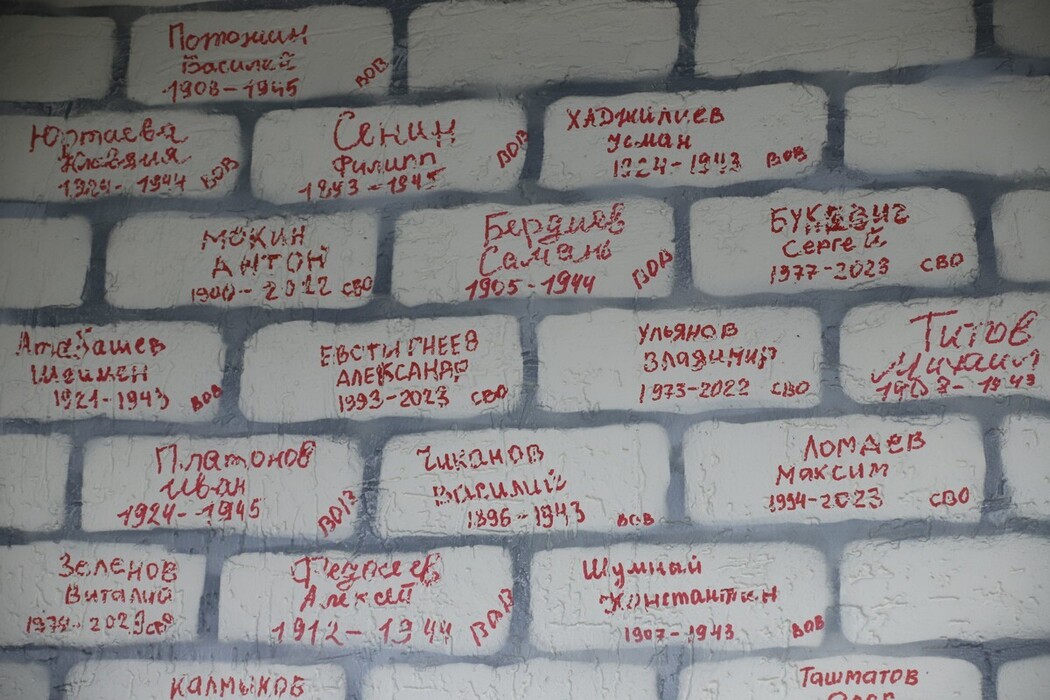 Потошин
Василий
1908-1945 ВОВ
Юртаева
Клавдия
1924-1944 ВОВ
Сенин
Филипп
1893-1945 ВОВ
ХАДЖИЛИЕВ
Усман
1924-1943 ВОВ
МОКИН
АНТОН
2022 СВО
Бердиев
Самань
1905-1944 ВОВ
БУКЕВИЧ
Сергей
1977-2023 СВО
Атабашев
Шеймен
1921-1943 ВОВ
ЕВСТЫГНЕЕВ
АЛЕКСАНДР
1993-2023 СВО
УЛЬЯНОВ
Владимир
1973-2022 СВО
Титов
Михаил
1943
Платонов
Иван
1924-1945 ВОВ
Чиканов
Василий
1896-1943 ВОВ
ЛОМАЕВ
МАКСИМ
1994-2023 СВО
Зеленов
Виталий
2023 СВО
Федосеев
Алексей
1912-1944 ВОВ
Шумный
Константин
1907-1943 ВОВ
КАЛМЫКОВ
Ташматов